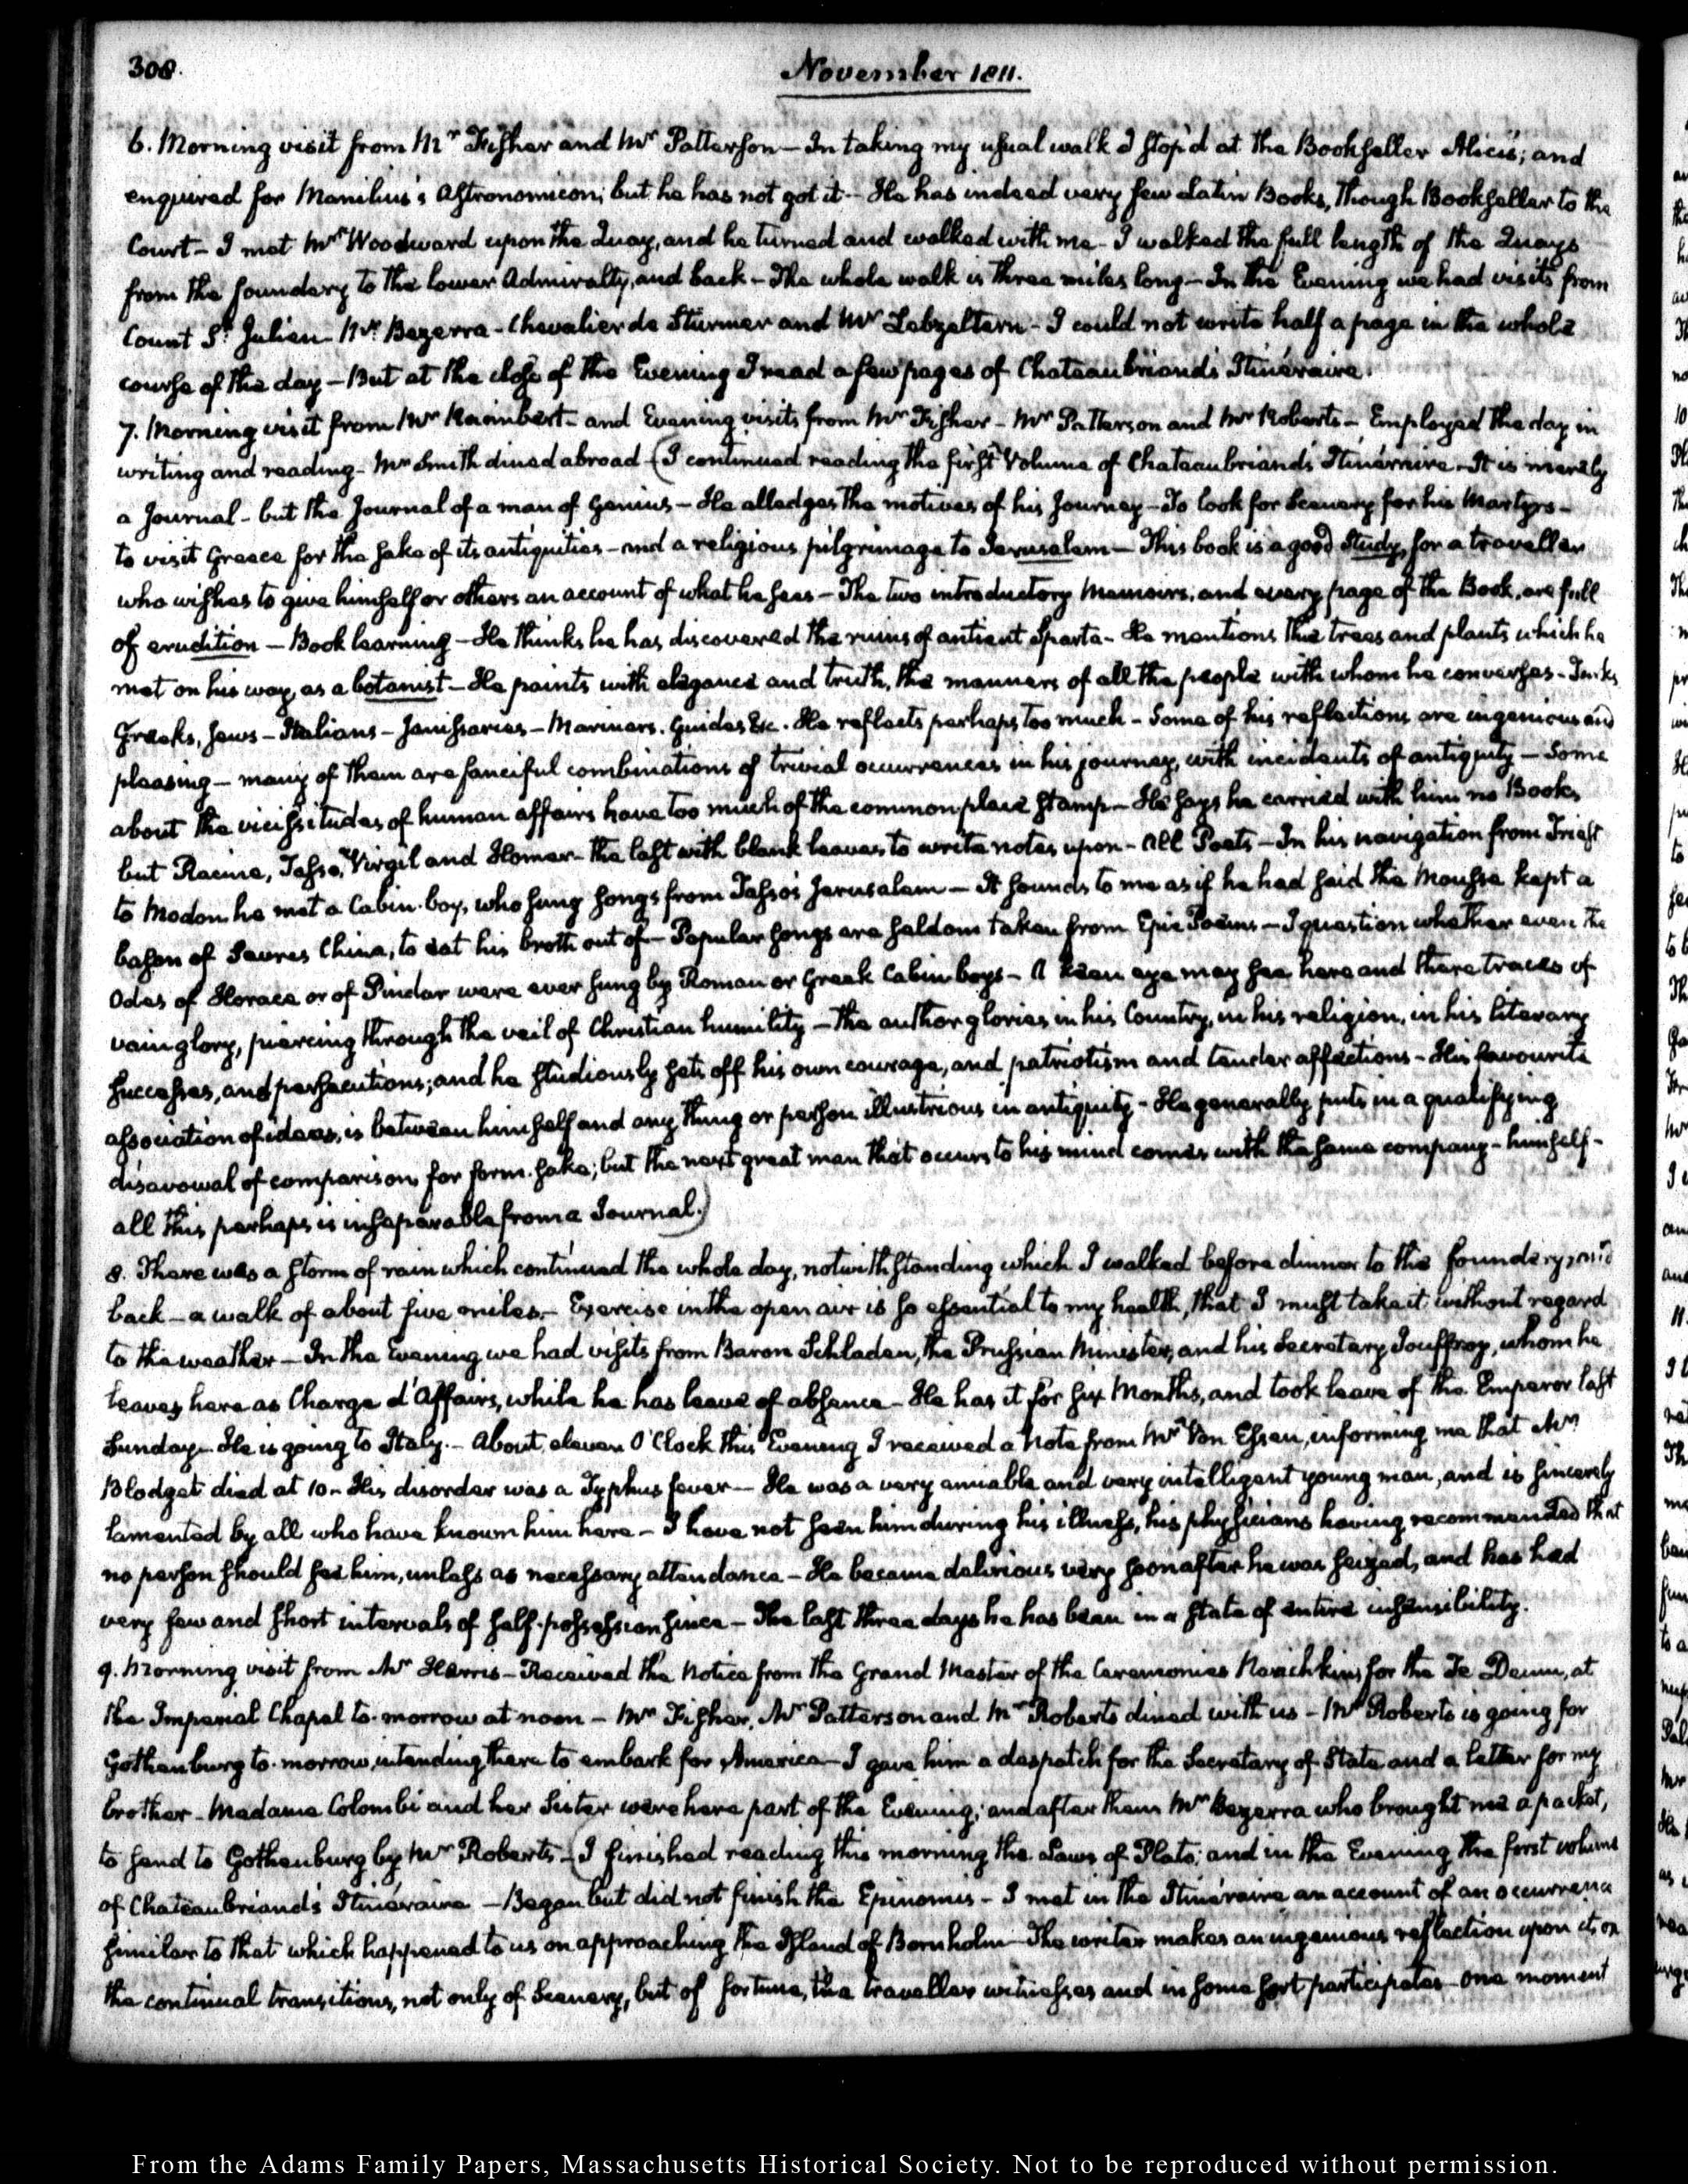 308.
November 1811.
6. Morning visit from Mr Fisher and Mr Patterson — In taking my usual walk I stop'd at the Bookseller Alici's; and
enquired for Manilius's Astronomicon; but he has not got it — He has indeed very few Latin Books, though Bookseller to the
Court — I met Mr Woodward upon the Quay, and he turned and walked with me — I walked the full length of the Quays
from the foundery to the lower Admiralty, and back — The whole walk is three miles long — In the Evening we had visits from
Count St Julien — Mr Bezerra — Chevalier de Sturmer and Mr Lebzeltern — I could not write half a page in the whole
course of the day — But at the close of the Evening I read a few pages of Chateaubriand's Itinéraire.
7. Morning visit from Mr Raimbert — and Evening visits from Mr Fisher — Mr Patterson and Mr Roberts — Employed the day in
writing and reading — Mr Smith dined abroad (I continued reading the first Volume of Chateaubriand's Itinéraire — It is merely
a Journal — but the Journal of a man of Genius — He alledges the motives of his Journey — To look for Scenery for his Martyrs —
to visit Greece for the sake of its antiquities — and a religious pilgrimage to Jerusalem — This book is a good study, for a traveller
who wishes to give himself or others an account of what he sees — The two introductory Memoirs, and every page of the Book, are full
of erudition — Book learning — He thinks he has discovered the ruins of antient Sparta — He mentions the trees and plants which he
met on his way, as a botanist — He paints with elegance and truth, the manners of all the people with whom he converses — Turks
Greeks, Jews — Italians — Janissaries — Mariners. Guides &c. He reflects perhaps too much — Some of his reflections are ingenious and
pleasing — many of them are fanciful combinations of trivial occurrences in his journey, with incidents of antiquity — Some
about the vicissitudes of human affairs have too much of the common place stamp — He says he carried with him no Books
but Racine, Tasso, Virgil and Homer — the last with blank leaves to write notes upon — All Poets — In his navigation from Triest
to Modon he met a Cabin-boy, who sung songs from Tasso's Jerusalem — It sounds to me as if he had said the Mousse kept a
bason of Sevres China, to eat his broth out of — Popular songs are seldom taken from Epic Poems — I question whether even the
Odes of Horace or of Pindar were ever sung by Roman or Greek Cabin boys — A keen eye may see here and there traces of
vain glory, piercing through the veil of Christian humility — The author glories in his Country, in his religion, in his literary
successes, and persecutions; and he studiously sets off his own courage, and patriotism and tender affections — His favourite
association of ideas, is between himself and any thing or person illustrious in antiquity — He generally puts in a qualifying
disavowal of comparison, for form-sake; but the next great man that occurs to his mind comes with the same company — himself —
all this perhaps is inseparable from a Journal.)
8. There was a storm of rain which continued the whole day, notwithstanding which I walked before dinner to the foundery, and
back — a walk of about five miles — Exercise in the open air is so essential to my health, that I must take it without regard
to the weather — In the Evening we had visits from Baron Schladen, the Prussian Minister, and his Secretary Jouffroy, whom he
leaves here as Charge d'Affairs, while he has leave of absence — He has it for six Months, and took leave of the Emperor last
Sunday — He is going to Italy. — About eleven O'Clock this Evening I received a Note from Mr Von Essen, informing me that Mr
Blodget died at 10 — His disorder was a Typhus fever — He was a very amiable and very intelligent young man, and is sincerely
lamented by all who have known him here — I have not seen him during his illness, his physicians having recommended that
no person should see him, unless as necessary attendance — He became delirious very soon after he was seized, and has had
very few and short intervals of self-possession since — The last three days he has been in a state of entire insensibility.
9. Morning visit from Mr Harris — Received the Notice from the Grand Master of the Ceremonies Narishkin, for the Te Deum, at
the Imperial Chapel to-morrow at noon — Mr Fisher, Mr Patterson and Mr Roberts dined with us — Mr Roberts is going for
Gothenburg to-morrow, intending there to embark for America — I gave him a despatch for the Secretary of State and a letter for my
brother — Madame Colombi and her Sister were here part of the Evening; and after them Mr Bezerra who brought me a packet,
to send to Gothenburg by Mr Roberts — (I finished reading this morning the Laws of Plato; and in the Evening the first volume
of Chateaubriand's Itinéraire — Began but did not finish the Epinomis — I met in the Itinéraire an account of an occurrence
similar to that which happened to us on approaching the Island of Bornholm — The writer makes an ingenious reflection upon it, on
the continual transitions, not only of Scenery, but of fortune, the traveller witnesses and in some sort participates — One moment
From the Adams Family Papers, Massachusetts Historical Society. Not to be reproduced without permission.